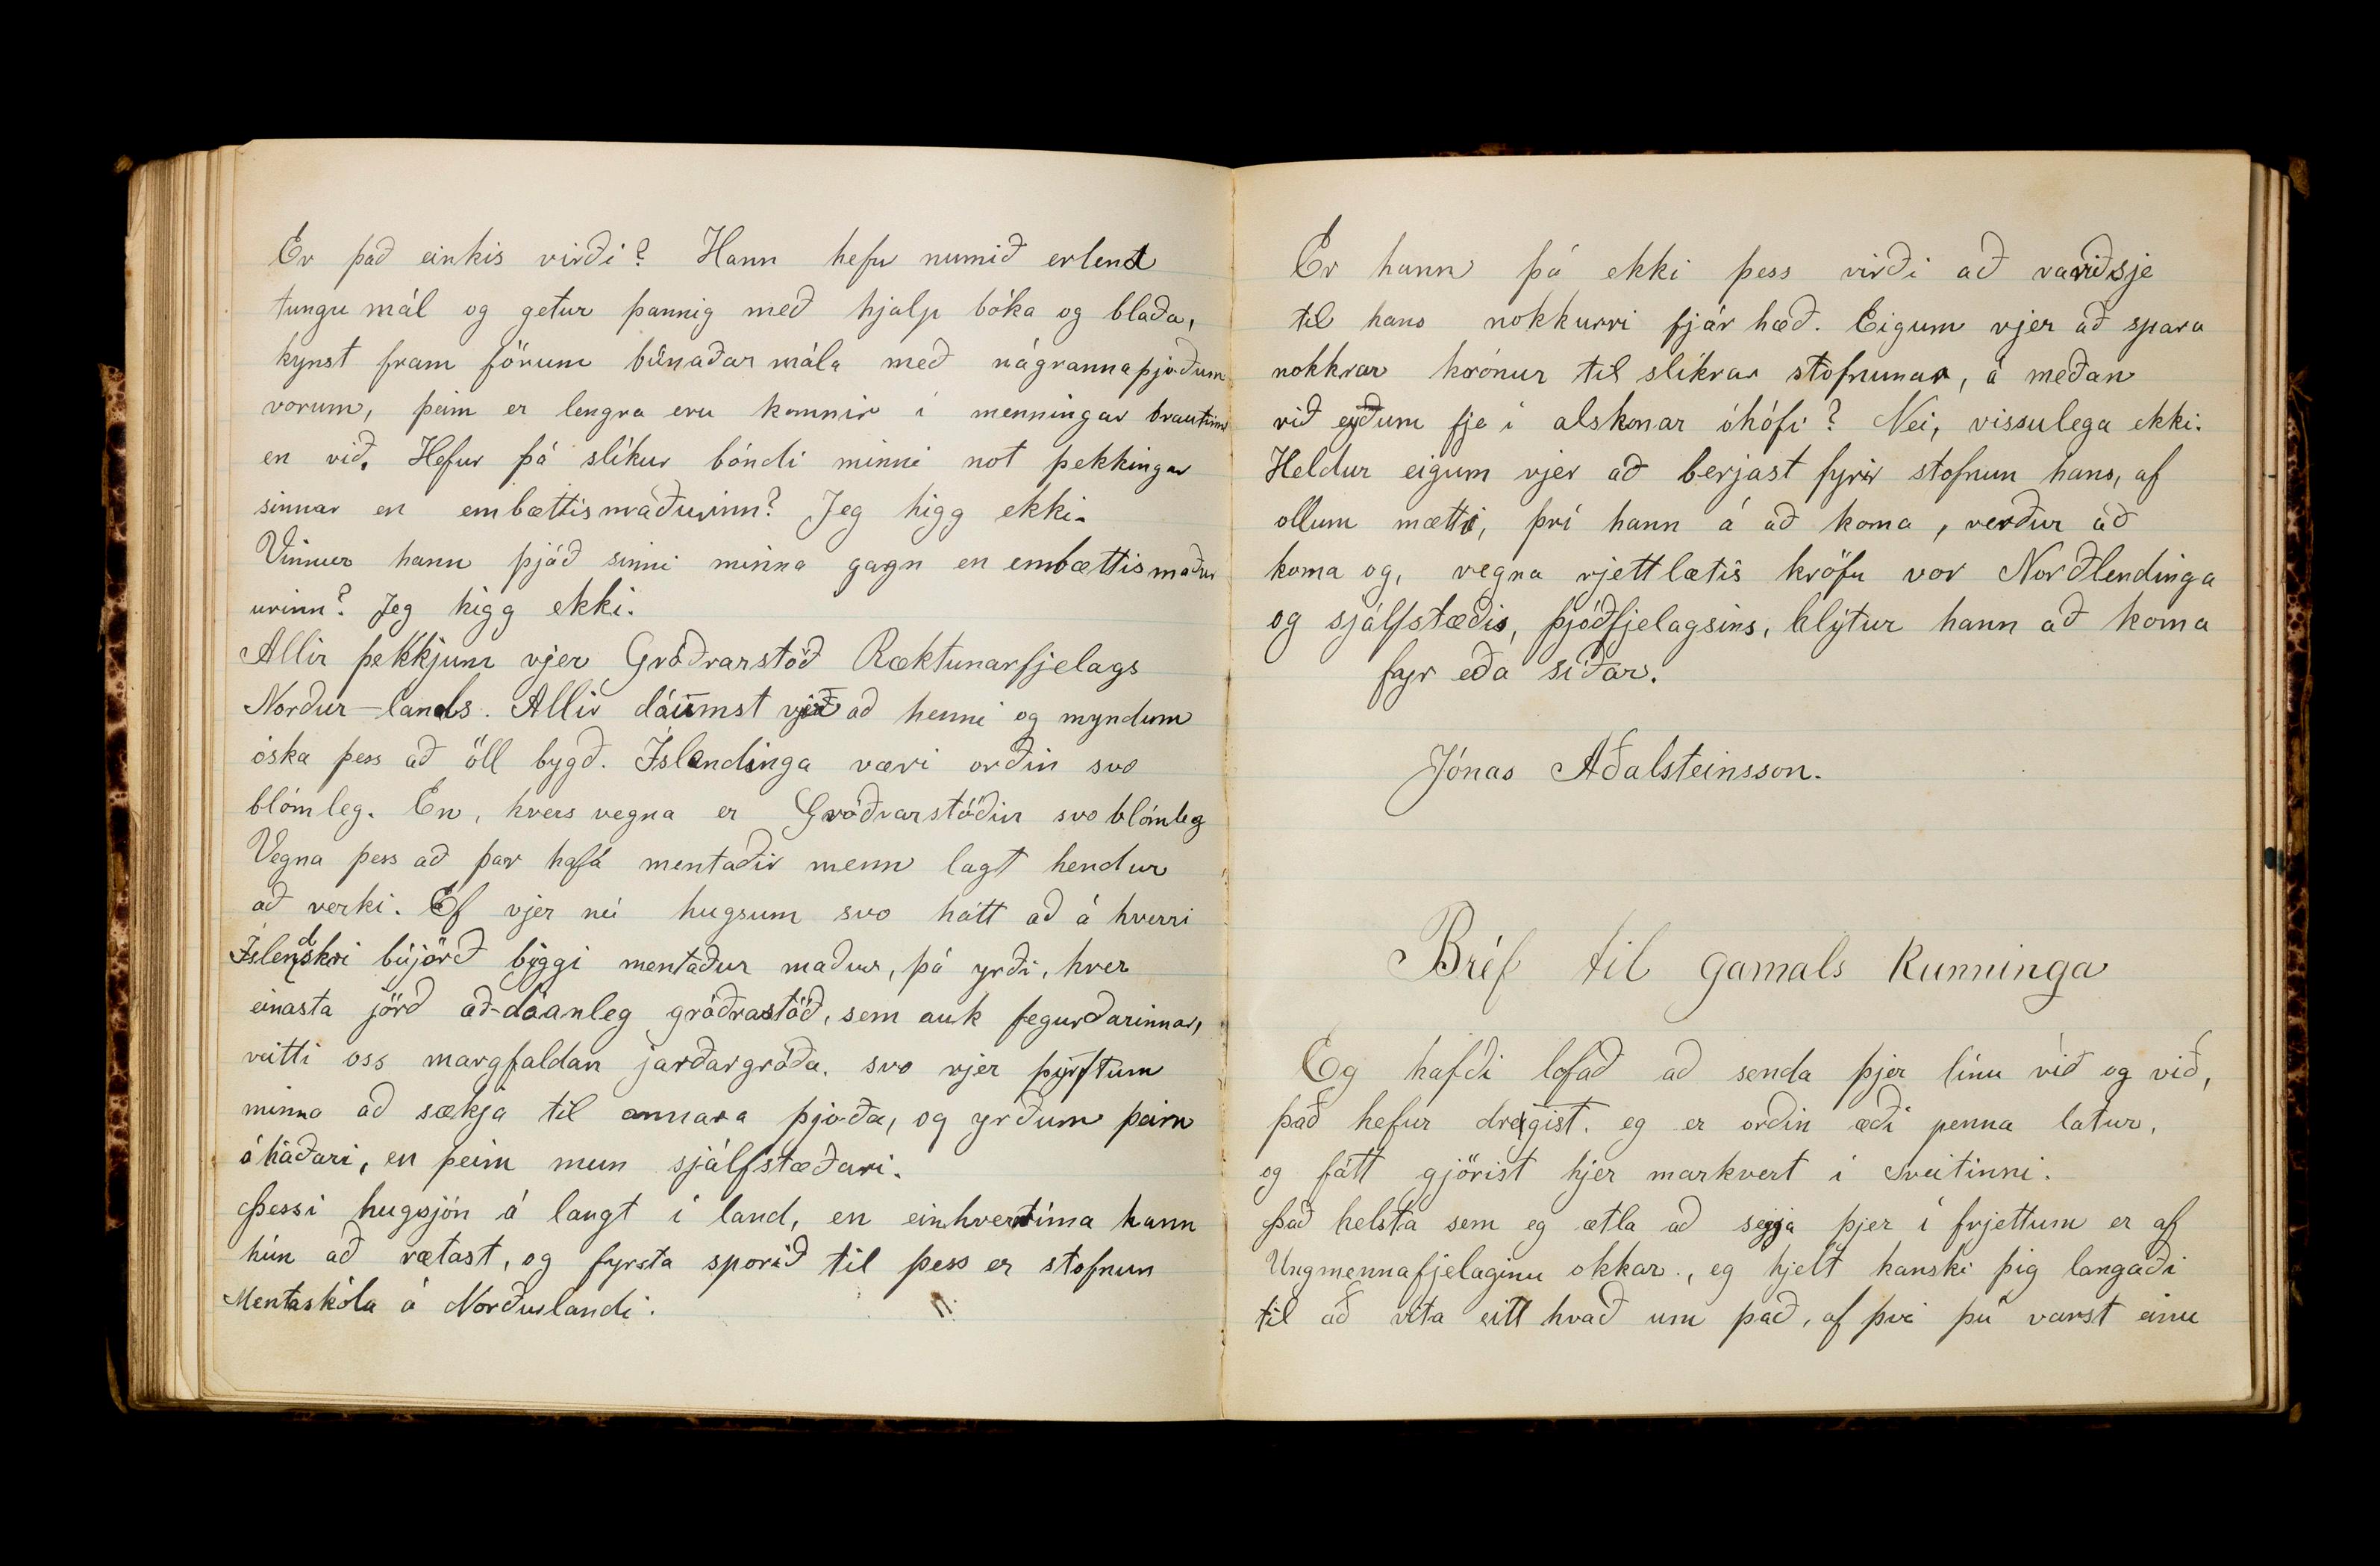 Er það einkis virði? Hann hefur numið erlend
tungu mál og getur þannig með hjalp bóka og blaða,
kynst fram förum búnaðar mála með nágrannaþjóðum
vorum, þeim er lengra eru komnir í menningar brautinni
en við. Hefur þá slíkur bóndi minni not þekkingar
sinnar en embættismaðurinn? Jeg higg ekki.
Vinnur hann þjóð sinni minna gagn en embættismaður
urinn? Jeg higg ekki.
Allir þekkjum vjer Gróðrarstöð Ræktunarfjelags
Norður-lands. Allir dáumst vjer að henni og myndum
óska þess að öll bygð. Íslendinga væri orðin svo
blómleg. En, hvers vegna er Gróðrarstöðin svo blómleg
Vegna þess að þar hafa mentaðir menn lagt hendur
að verki. Ef vjer nú hugsum svo hátt að á hverri
Íslendskri bújörð byggi mentaður maður, þá yrði, hver
einasta jörð að-dáanleg gróðrastöð, sem auk fegurðarinnar,
veitti oss margfaldan jarðargróða. svo vjer þyrftum
minna að sækja til annara þjóða, og yrðum þeim
óháðari, en þeim mun sjálfstæðari.
Þessi hugsjón á langt í land, en einhverntíma kann
hún að rætast, og fyrsta sporið til þess er stofnun
Mentaskóla á Norðurlandi.
Er hann þá ekki þess virði að variðsje
til hans nokkurri fjár hæð. Eigum vjer að spara
nokkrar krónur til slíkrar stofnunar, á meðan
við eyðum fje í alskonar óhófi? Nei, vissulega ekki.
Heldur eigum vjer að berjast fyrir stofnun hans, af
ollum mætti, því hann á að koma, verður að
koma og, vegna rjettlætis kröfu vor Norðlendinga
og sjálfstæðis, þjóðfjelagsins, hlýtur hann að koma
fyr eða síðar.
Jónas Aðalsteinsson.
Bréf til gamals kunninga
Eg hafði lofað að senda þjer línu við og við,
það hefur dregist. eg er orðin æði penna latur,
og fátt gjörist hjer markvert í sveitinni.
Það helsta sem eg ætla að segja þjer í frjettum er af
Ungmennafjelaginu okkar., eg hjelt kanski þig langaði
til að vita eitt hvað um það, af því þú varst einu